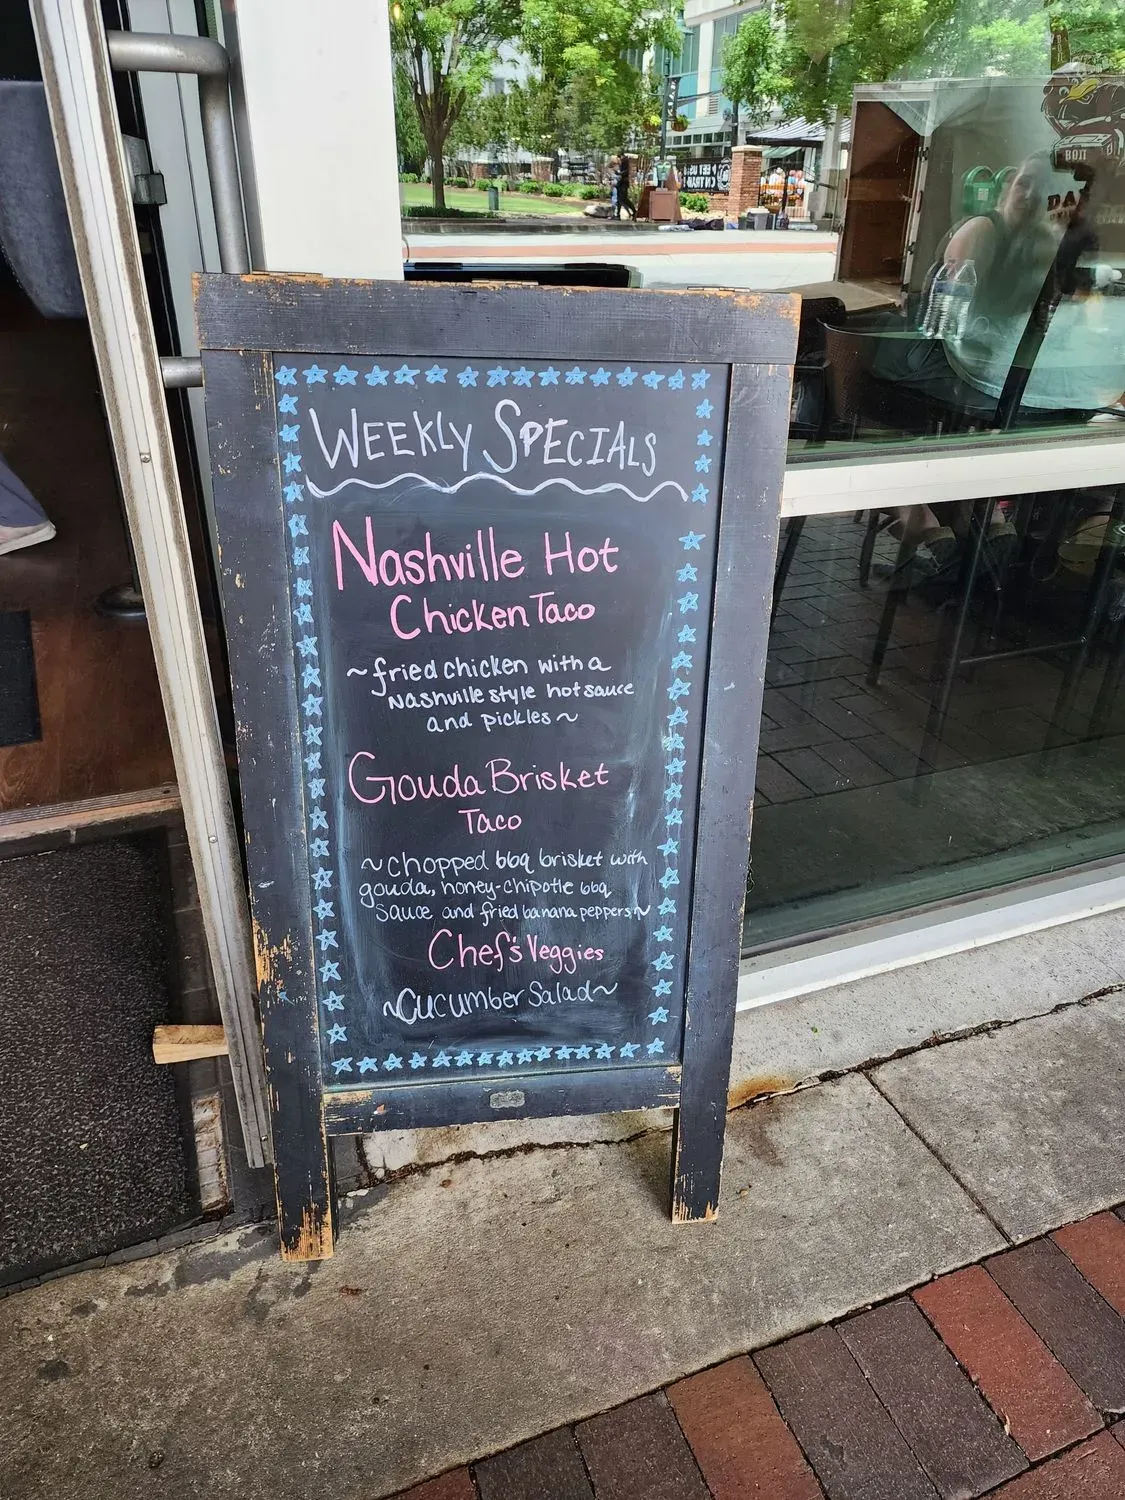 WEEKLY SPECIALS
Nashville Hot
Chicken Taco
~fried chicken with a
Nashville style hot sauce
and pickles~
Gouda Brisket
Taco
~chopped bbq brisket with
gouda, honey-chipotle bbq
sauce and fried banana peppers~
Chef's Veggies
~Cucumber Salad~